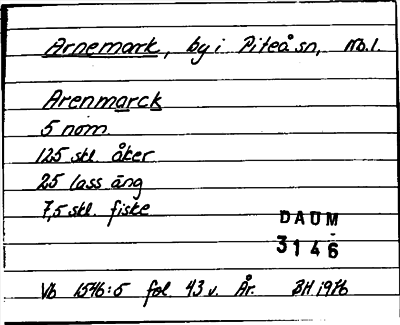 Arnemark, by i Piteå sn, Nb.l.
Arenmarck
5 nom.
125 skl. åker
25 lass äng
7,5 skl. fiske
DAUM
3146
Vb 1546:5 fol. 43 v. År. BH 1976